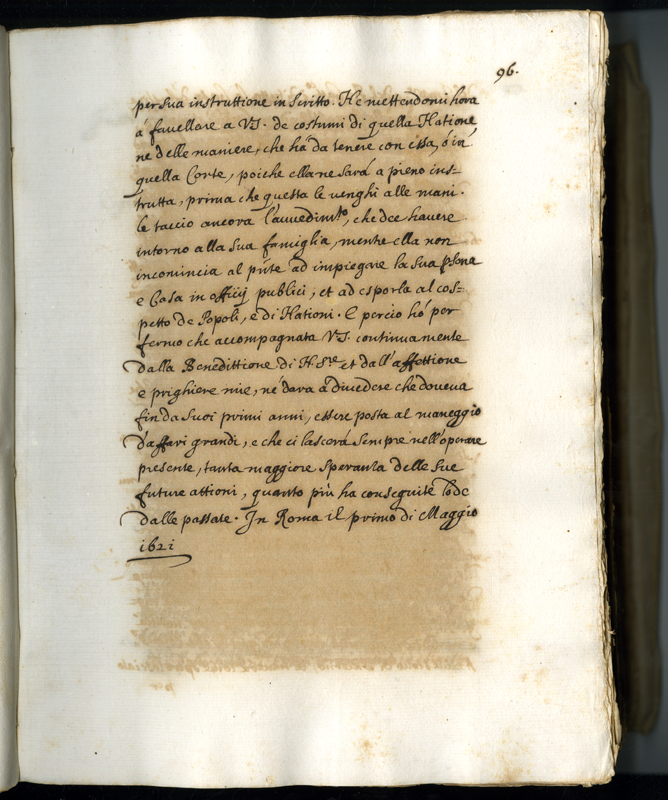 96.
per sua instruttione in scritto. Ne mettendomi hora
á favellare a V.S. de costumi di quella Natione,
ne delle maniere, che há da tenere con essa, ó in
quella Corte, poiche ella ne sará a pieno ins=
trutta, prima che questa le venghi alle mani.
le taccio ancora l'avvedimto, che dee havere
intorno alla sua famiglia, mentre ella non
incomincia al pnte ad impiegare la sua psona
e Casa in officij publici, et ad esporla al cos=
petto de Popoli, e di Nationi. E percio hó per
fermo che accompagnata V.S. continuamente
dalla Benedittione di N. Sre et dall'affettione
e prighiere mie, ne dara a divedere che doveva
fin da suoi primi anni, essere posta al maneggio
d'affari grandi, e che ci lascera sempre nell'operare
presente, tanta maggiore speranza delle sue
future attioni, quanto più ha conseguite lode
dalle passate. In Roma il primo di Maggio
1621